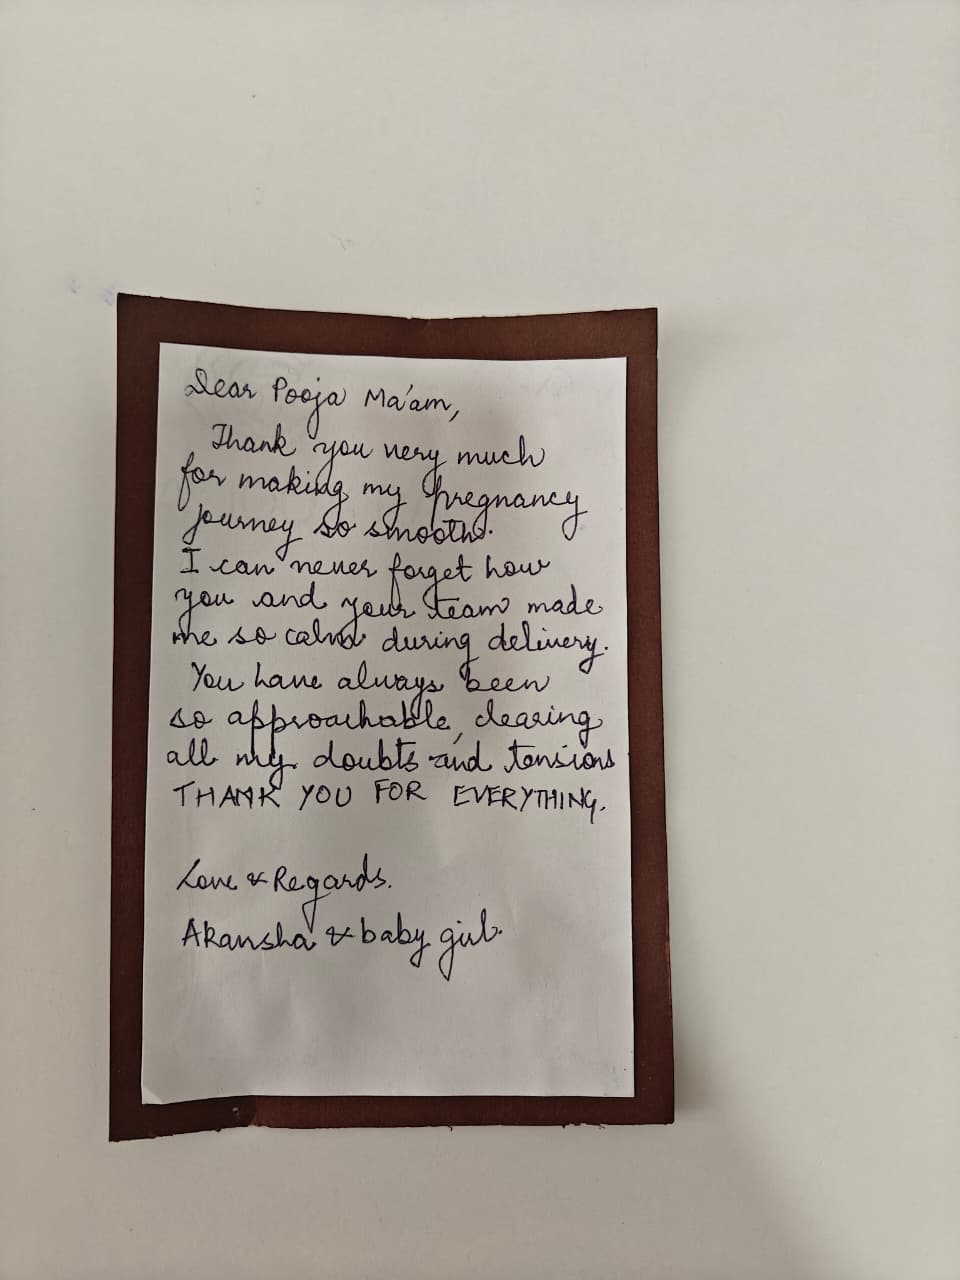 Dear Pooja Ma'am,
Thank you very much
for making my pregnancy
journey so smooth.
I can never forget how
you and your team made
me so calm during delivery.
You have always been
so approachable, clearing
all my doubts and tensions
THANK YOU FOR EVERYTHING.
Love & Regards.
Akansha & baby girl.